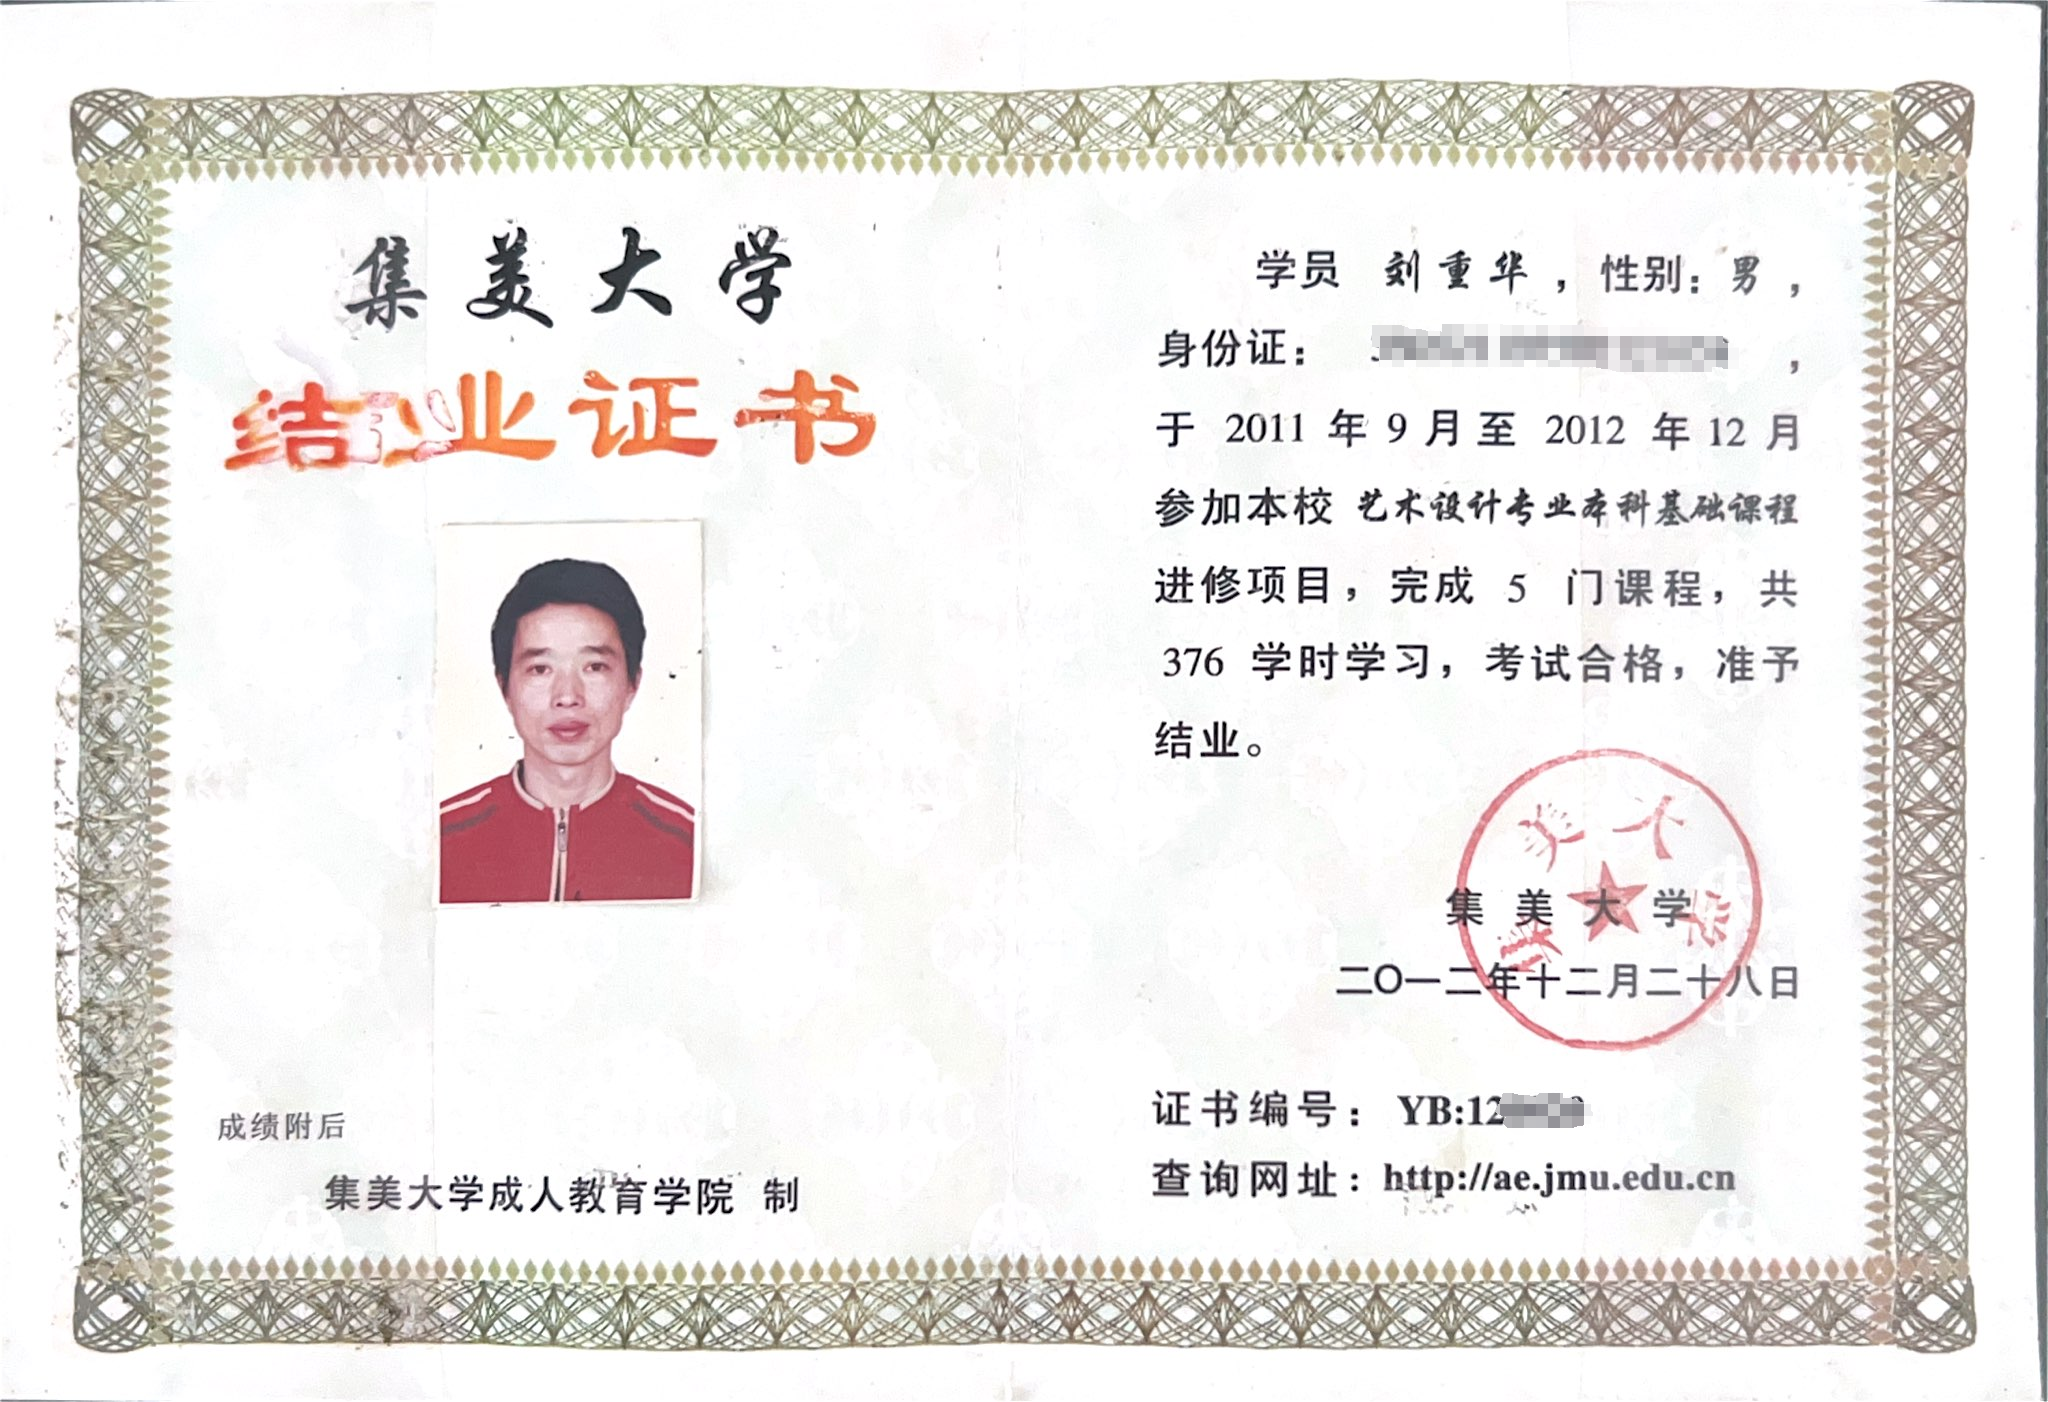 集美大学
结业证书
成绩附后
集美大学成人教育学院 制
学员 刘重华，性别：男，
身份证：，
于 2011 年 9 月至 2012 年 12 月
参加本校 艺术设计专业本科基础课程
进修项目，完成 5 门课程，共
376 学时学习，考试合格，准予
结业。
集美大学
集美大学
二〇一二年十二月二十八日
证书编号：YB:12
查询网址：http://ae.jmu.edu.cn